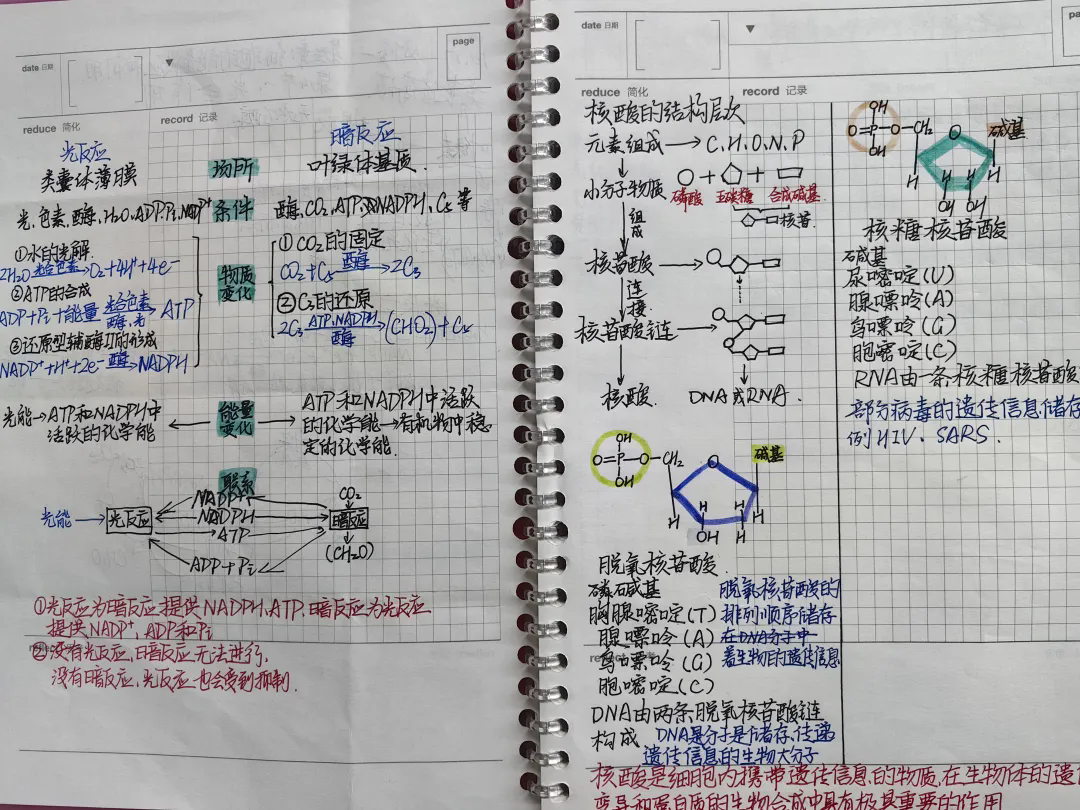 date 日期
page
reduce 简化
record 记录
光反应
场所
暗反应
类囊体薄膜
叶绿体基质.
光、色素、酶、H₂O、ADP、Pi、NADP⁺
条件
酶、CO₂、ATP、NADPH、C₅等
①水的光解.
2H₂O 光合色素→O₂+4H⁺+4e⁻
②ATP的合成
ADP+Pi+能量 光合色素 酶、光→ATP
③还原型辅酶Ⅱ的形成
NADP⁺+H⁺+2e⁻ 酶→NADPH
物质
变化
①CO₂的固定
CO₂+C₅ 酶→2C₃
②C₃的还原
2C₃ ATP、NADPH 酶→(CHO₂)+C₅
光能→ATP和NADPH中
活跃的化学能
能量
变化
ATP和NADPH中活跃
的化学能→有机物中稳
定的化学能.
联系
光能→光反应
NADP⁺
NADPH
ATP
ADP+Pi
CO₂
暗反应
(CH₂O)
①光反应为暗反应提供NADPH、ATP、暗反应为光反应
提供NADP⁺、ADP和Pi
②没有光反应,暗反应无法进行,
没有暗反应,光反应也会受到抑制.
date 日期
reduce 简化
record 记录
核酸的结构层次
元素组成→C、H、O、N、P
小分子物质 ○+⬠+▭
磷酸 五碳糖 含氮碱基
核苷.
组成
核苷酸
连接
核苷酸链
核酸.
DNA或RNA.
OH
O=P—O—CH₂
OH
O
碱基
H
H
H
OH
H
H
脱氧核苷酸.
磷碱基
胸腺嘧啶(T)
腺嘌呤(A)
鸟嘌呤(G)
胞嘧啶(C)
脱氧核苷酸的
排列顺序储存
在DNA分子中
着生物的遗传信息
DNA由两条脱氧核苷酸链
构成 DNA是分子是储存、传递
遗传信息的生物大分子
核酸是细胞内携带遗传信息的物质,在生物体的遗
变异和蛋白质的生物合成中具有极其重要的作用
OH
O=P—O—CH₂
OH
O
碱基
H
H
H
H
OH OH
核糖核苷酸
碱基
尿嘧啶(U)
腺嘌呤(A)
鸟嘌呤(G)
胞嘧啶(C)
RNA由一条核糖核苷酸
部分病毒的遗传信息储存
例HIV、SARS.